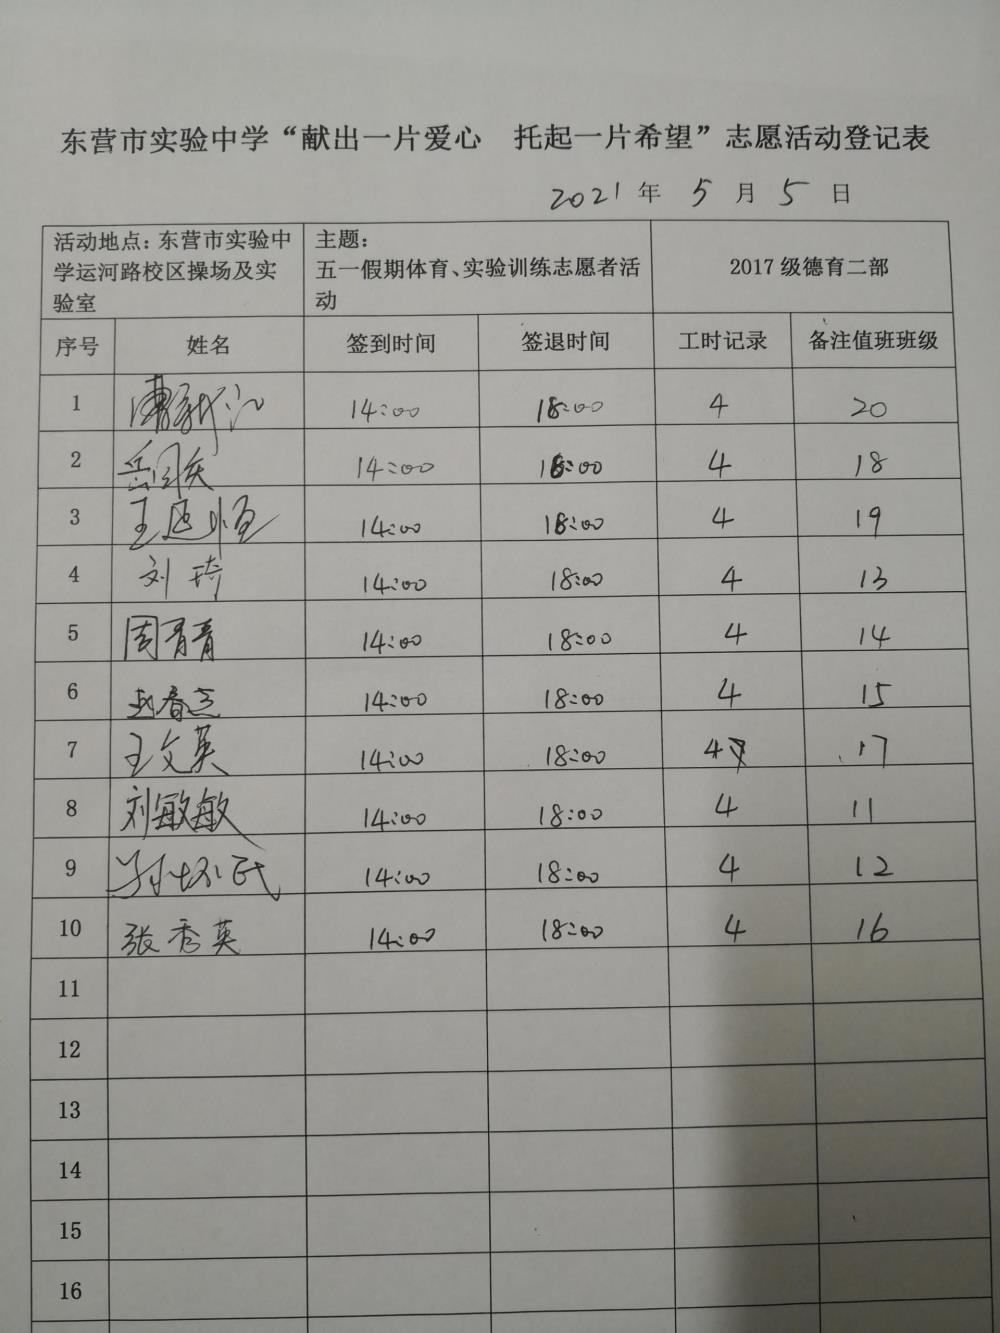 东营市实验中学“献出一片爱心 托起一片希望”志愿活动登记表
2021 年 5 月 5 日
活动地点：东营市实验中学运河路校区操场及实验室 主题：五一假期体育、实验训练志愿者活动 2017 级德育二部
序号 姓名 签到时间 签退时间 工时记录 备注值班班级
1 14:00 18:00 4 20
2 14:00 18:00 4 18
3 王延恒 14:00 18:00 4 19
4 刘琦 14:00 18:00 4 13
5 周青青 14:00 18:00 4 14
6 14:00 18:00 4 15
7 王文英 14:00 18:00 4 17
8 刘敏敏 14:00 18:00 4 11
9 14:00 18:00 4 12
10 张秀英 14:00 18:00 4 16
11
12
13
14
15
16